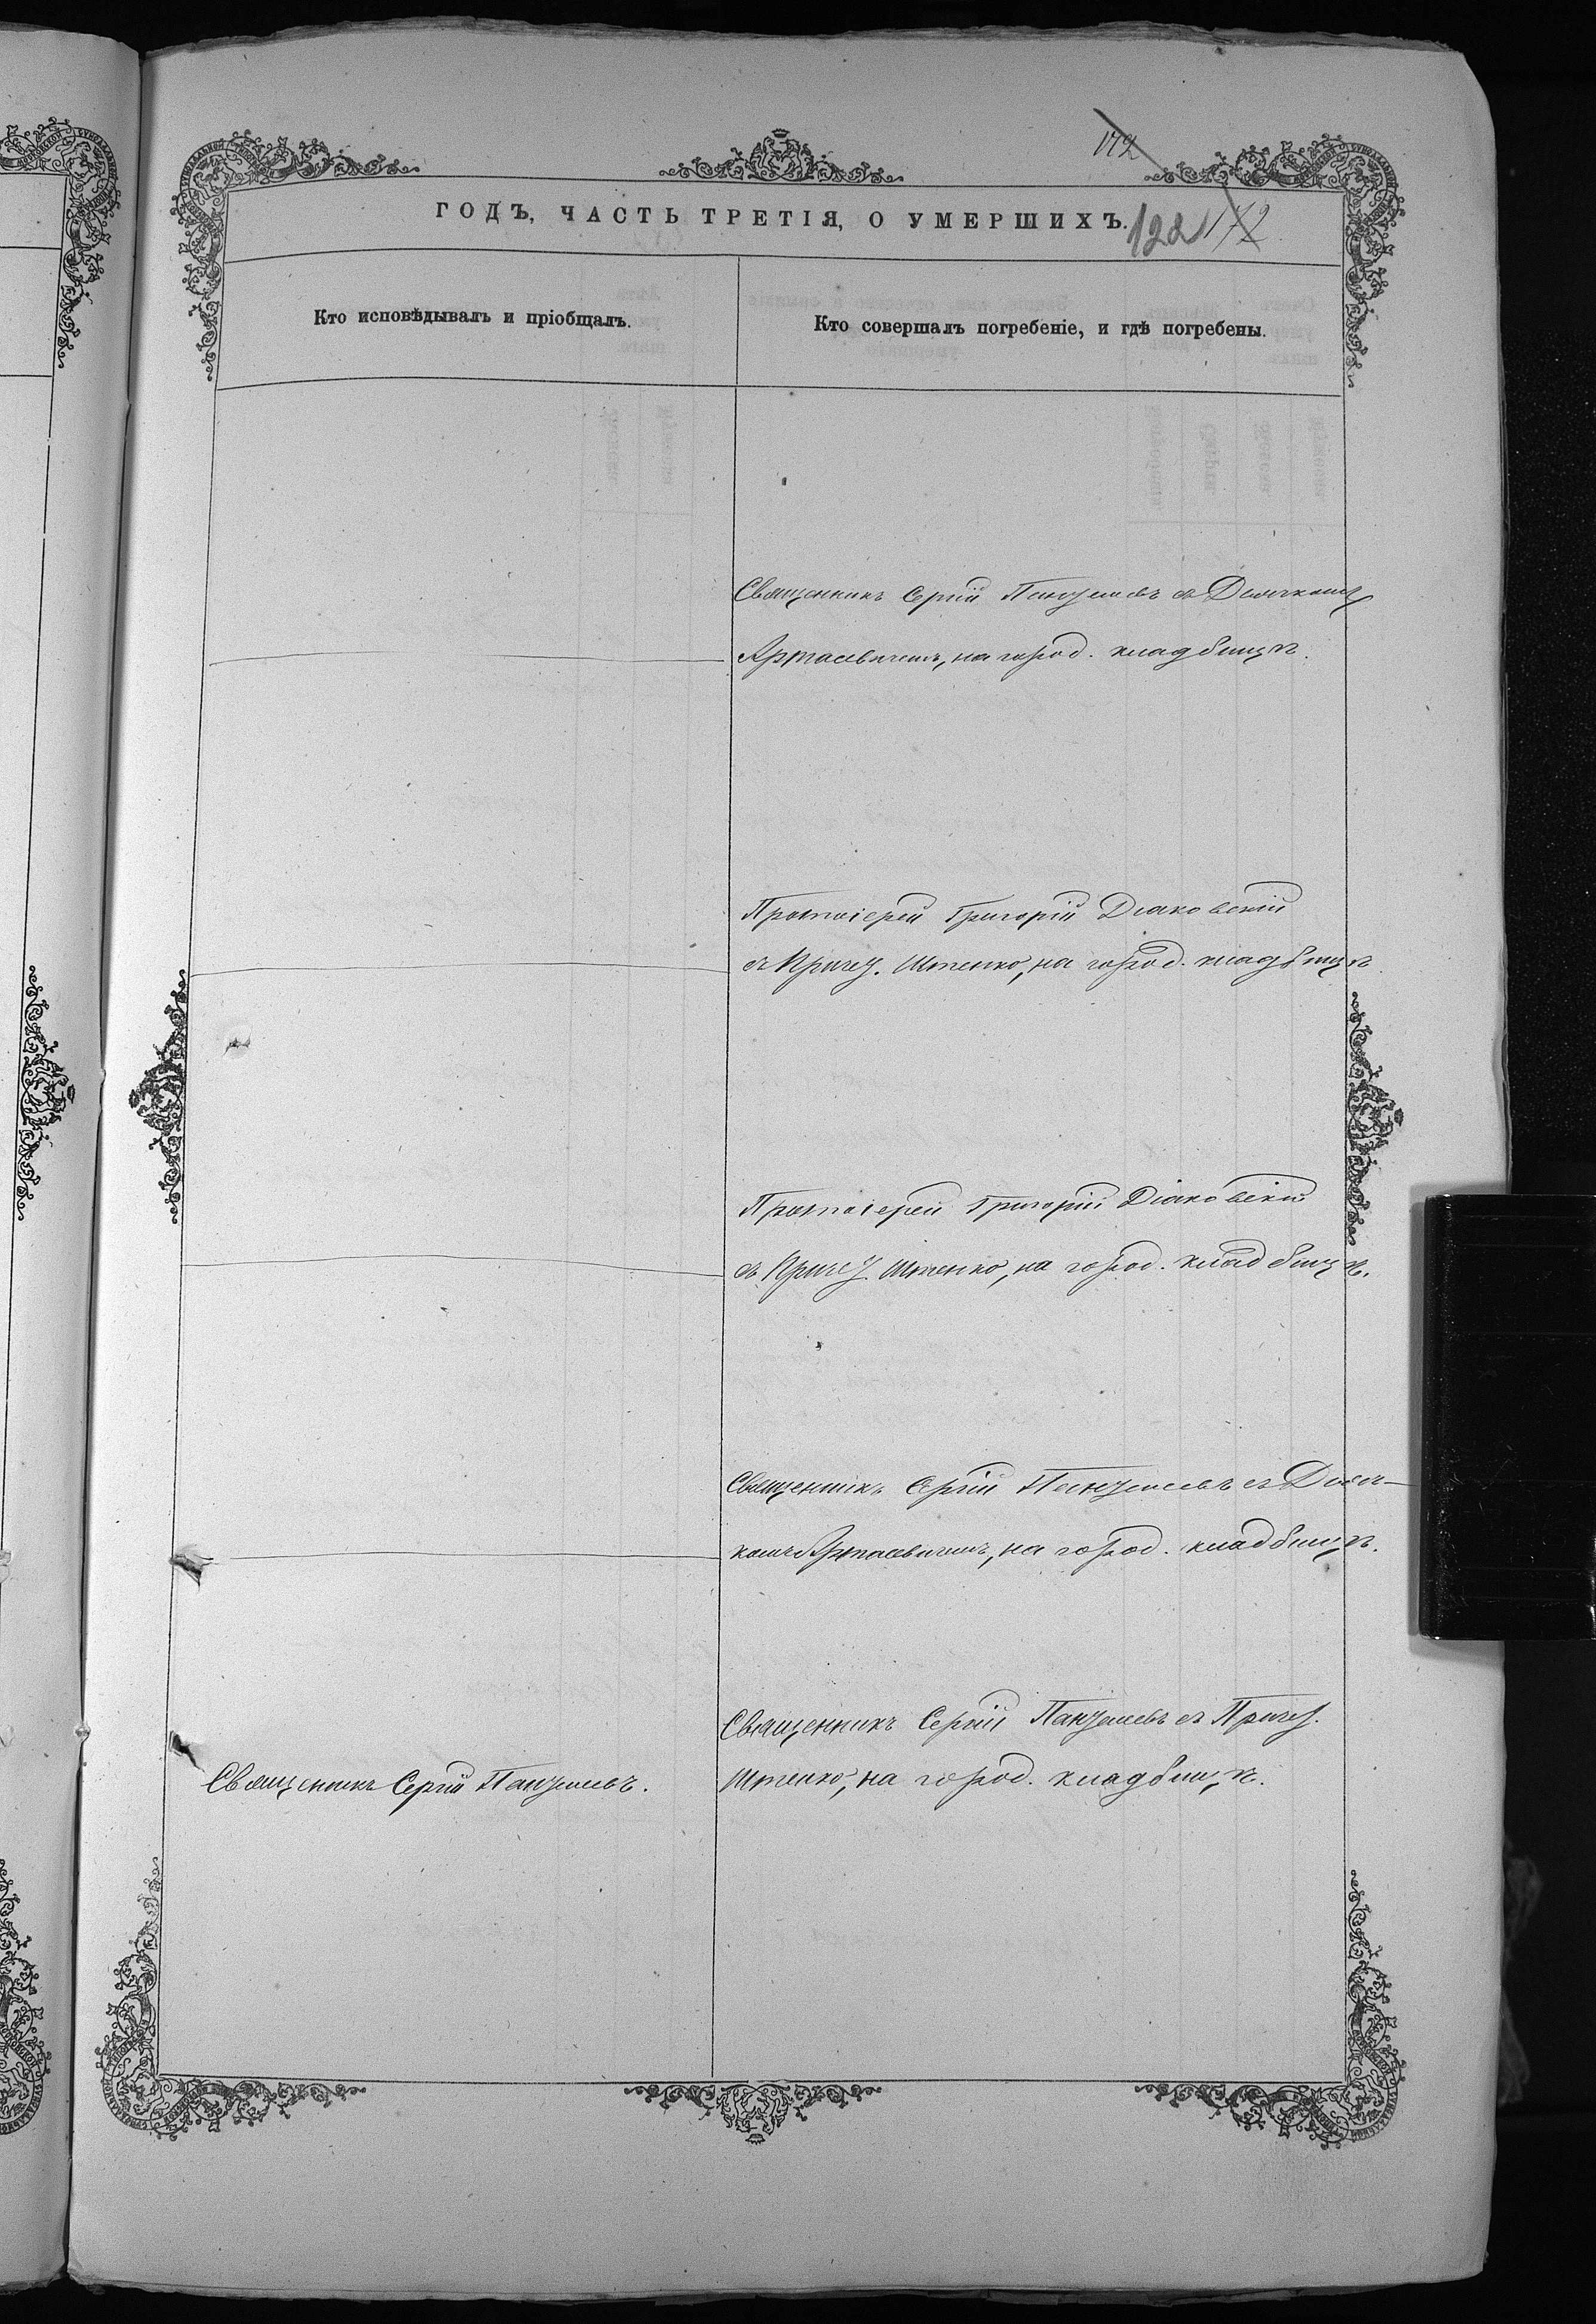 172
ГОДЪ, ЧАСТЬ ТРЕТІЯ, О УМЕРШИХЪ.
122 172
Кто исповѣдывалъ и пріобщалъ.
Кто совершалъ погребеніе, и гдѣ погребены.
Священникъ Сергій съ Дьячкомъ
на город. кладбищѣ.
Протоіерей Григорій Діаковскій
съ Причет. Штенко, на город. кладбищѣ
Протоіерей Григорій Діаковскій
съ Причет. Штенко, на город. кладбищѣ.
Священникъ Сергій съ Дьяч-
комъ на город. кладбищѣ.
Священникъ Сергій
Священникъ Сергій съ Причет.
Штенко, на город. кладбищѣ.